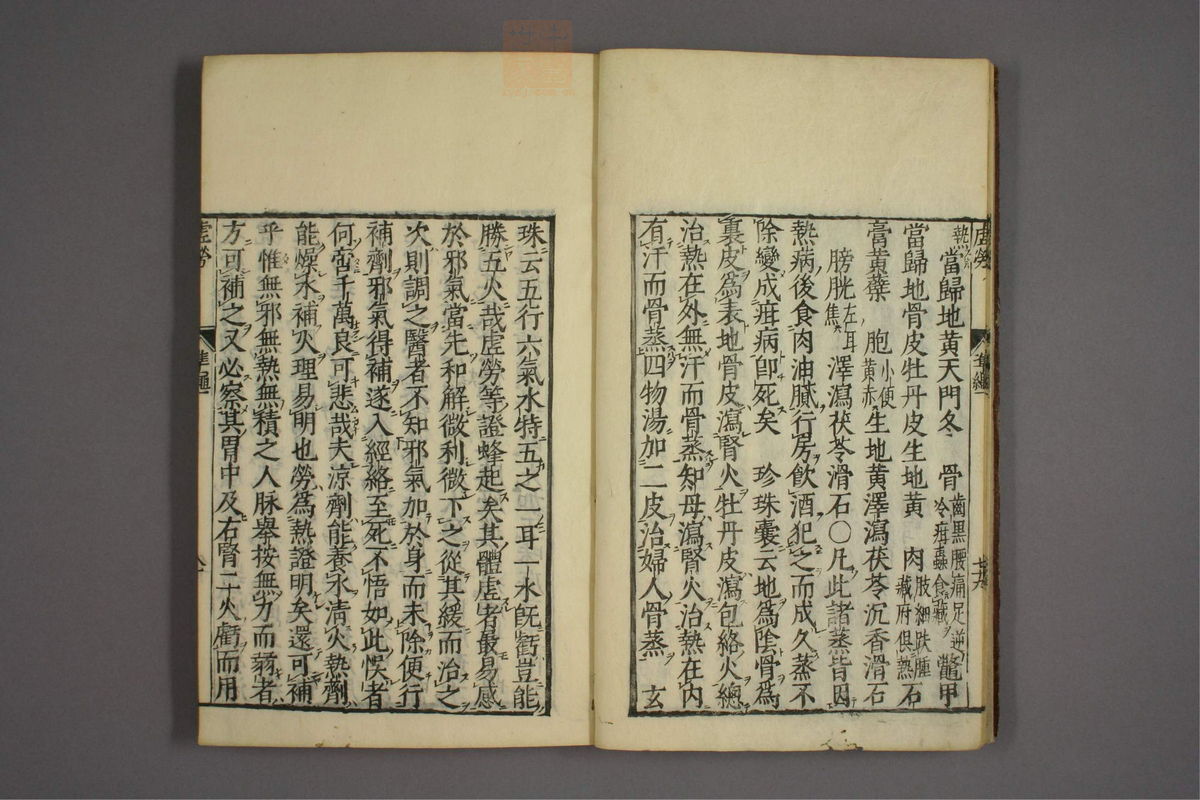 虚勞
準繩
熱 當歸地黃天門冬 骨 齒黑腰痛足逆 冷疳蟲食藏 鼈甲
當歸地骨皮牡丹皮生地黃 肉 肢細趺腫 臟府俱熱 石
膏黃蘗 胞 小便 黃赤 生地黃澤瀉茯苓沉香滑石
膀胱 左耳 焦 澤瀉茯苓滑石〇凡此諸蒸皆因
熱病後食肉油膩行房飲酒犯之而成久蒸不
除變成疳病卽死矣 珍珠囊云地爲陰骨爲
裏皮爲表地骨皮瀉腎火牡丹皮瀉包絡火總
治熱在外無汗而骨蒸知母瀉腎火治熱在內
有汗而骨蒸四物湯加二皮治婦人骨蒸 玄
珠云五行六氣水特五之一耳一水旣虧豈能
勝五火哉虚勞等證蜂起矣其體虛者最易感
於邪氣當先和解微利微下之從其緩而治之
次則調之醫者不知邪氣加於身而未除便行
補劑邪氣得補遂入經絡至死不悟如此悞者
何啻千萬良可悲哉夫涼劑能養水淸火熱劑
能燥水補火理易明也勞爲熱證明矣還可補
乎惟無邪無熱無積之人脉舉按無力而弱者
方可補之又必察其胃中及右腎二火虧而用
虚勞
準繩